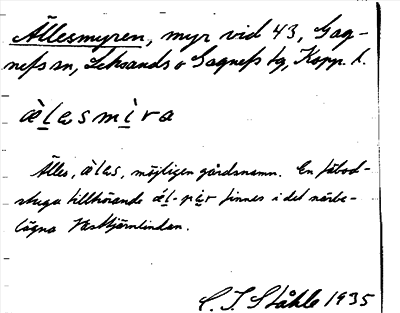 Ällesmyren, myr vid 43, Gag-
nefs sn, Leksands o Gagnefs tg, Kopp. l.
älesmira
Älles, äles, möjligen gårdsnamn. En fäbod-
stuga tillhörande finnes i det närbe-
lägna Västtjärnlindan.
C. I. Ståhle 1935